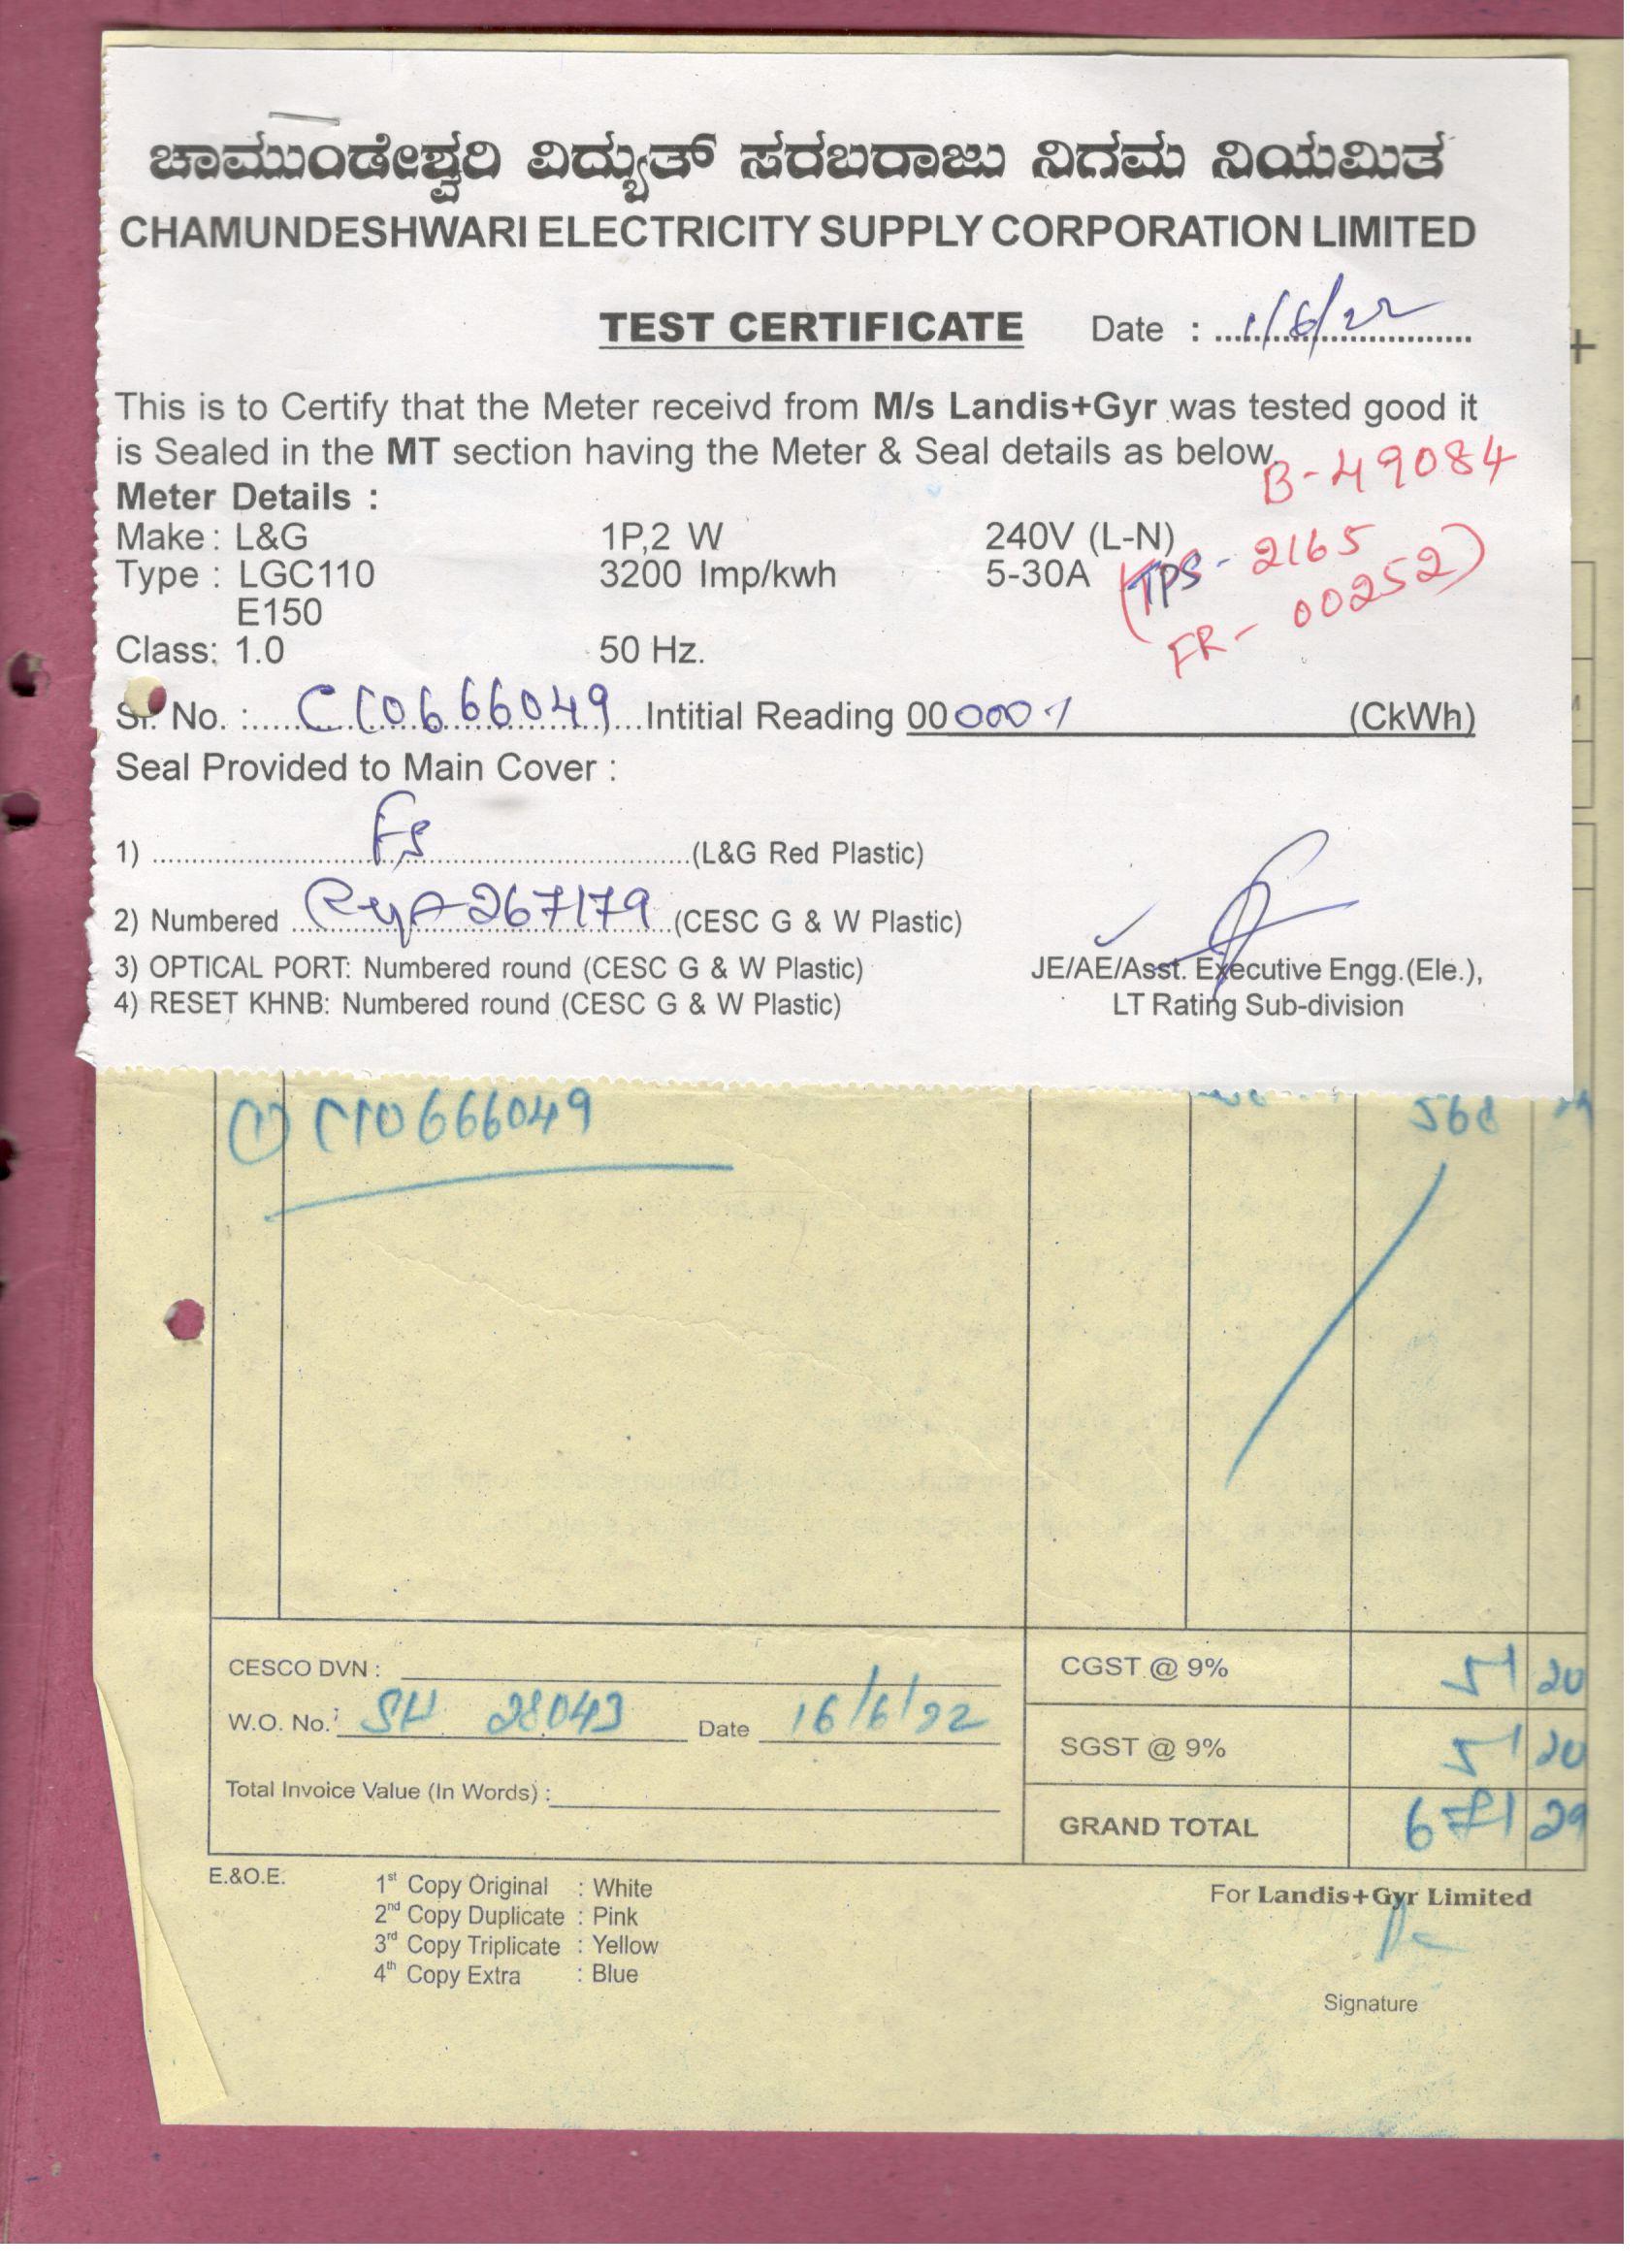 ಚಾಮುಂಡೇಶ್ವರಿ ವಿದ್ಯುತ್ ಸರಬರಾಜು ನಿಗಮ ನಿಯಮಿತ
CHAMUNDESHWARI ELECTRICITY SUPPLY CORPORATION LIMITED
TEST CERTIFICATE Date : 1/6/22
This is to Certify that the Meter receivd from M/s Landis+Gyr was tested good it
is Sealed in the MT section having the Meter & Seal details as below.
B-49084
Meter Details :
Make : L&G 1P,2 W 240V (L-N)
Type : LGC110 3200 Imp/kwh 5-30A
(TPS - 2165
E150
FR - 00252)
Class: 1.0 50 Hz.
Sr. No. : C10666049 Intitial Reading 00 0001 (CkWh)
Seal Provided to Main Cover :
1) FS (L&G Red Plastic)
2) Numbered 267179 (CESC G & W Plastic)
3) OPTICAL PORT: Numbered round (CESC G & W Plastic)
4) RESET KHNB: Numbered round (CESC G & W Plastic)
JE/AE/Asst. Executive Engg.(Ele.),
LT Rating Sub-division
(1) C10666049 568
CESCO DVN :
W.O. No.: SH 28043 Date 16/6/22
Total Invoice Value (In Words) :
CGST @ 9% 51 20
SGST @ 9% 51 20
GRAND TOTAL 671 29
E.&O.E.
1st Copy Original : White
2nd Copy Duplicate : Pink
3rd Copy Triplicate : Yellow
4th Copy Extra : Blue
For Landis+Gyr Limited
Signature